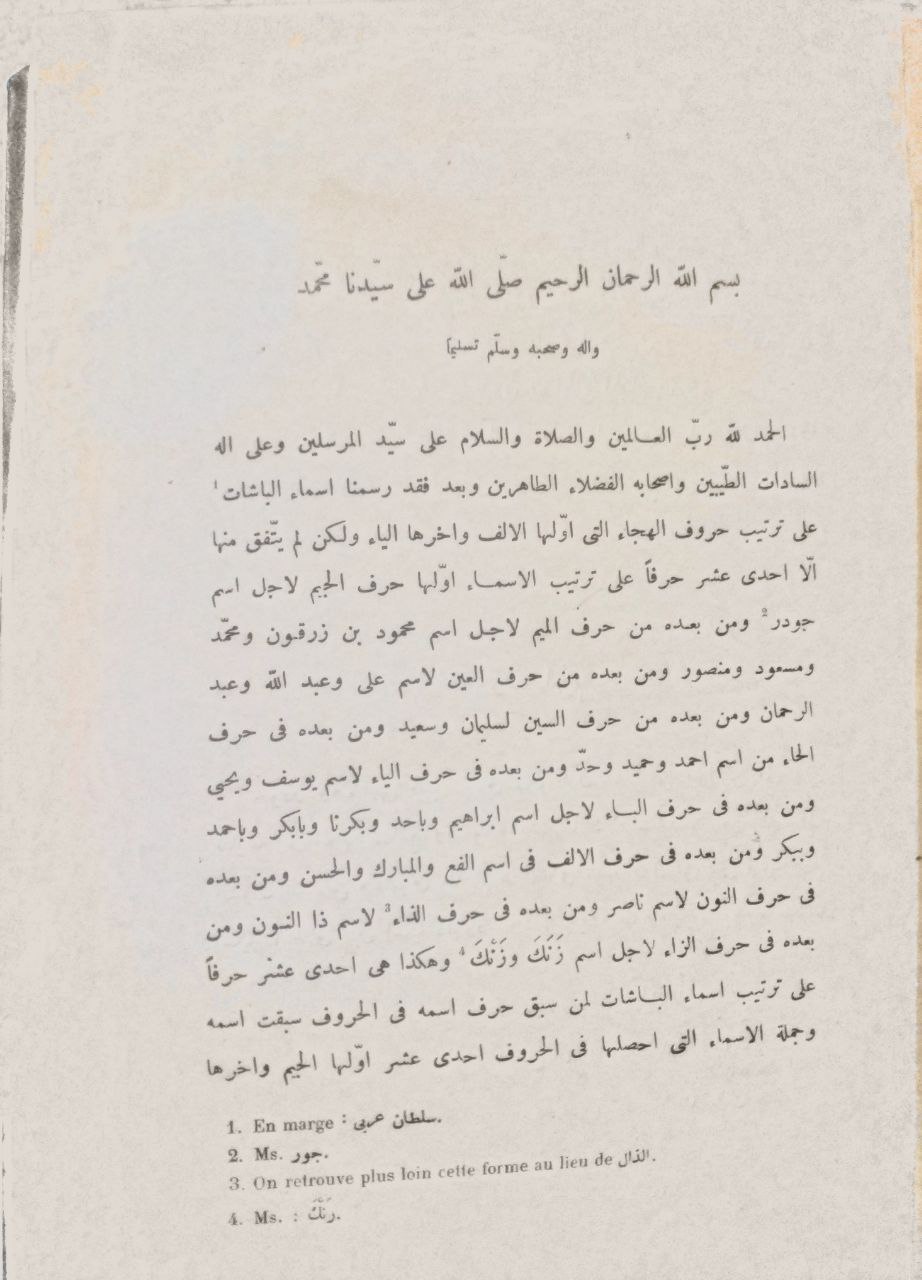 بسم الله الرحمان الرحيم صلّى الله على سيّدنا محّمد
واله وصحبه وسلّم تسليمًا
الحمد لله ربّ العالمين والصلاة والسلام على سيّد المرسلين وعلى اله
السادات الطّيبين واصحابه الفضلاء الطاهرين وبعد فقد رسمنا اسماء الباشات¹
على ترتيب حروف الهجاء التى اوّلها الالف واخرها الياء ولكن لم يتّفق منها
الّا احدى عشر حرفاً على ترتيب الاسماء اوّلها حرف الجيم لاجل اسم
جودر² ومن بعده من حرف الميم لاجل اسم محمود بن زرقون ومحّمد
ومسعود ومنصور ومن بعده من حرف العين لاسم على وعبد الله وعبد
الرحمان ومن بعده من حرف السين لسليمان وسعيد ومن بعده فى حرف
الحاء من اسم احمد وحميد وحدّ ومن بعده فى حرف الياء لاسم يوسف ويحيي
ومن بعده فى حرف الباء لاجل اسم ابراهيم وباحد وبكرنا وبابكر وباحمد
وببكر ومن بعده فى حرف الالف فى اسم الفع والمبارك والحسن ومن بعده
فى حرف النون لاسم ناصر ومن بعده فى حرف الذاء³ لاسم ذا النون ومن
بعده فى حرف الزاء لاجل اسم زَنَكَ وزَنْكَ⁴ وهكذا هى احدى عشر حرفاً
على ترتيب اسماء الباشات لمن سبق حرف اسمه فى الحروف سبقت اسمه
وجملة الاسماء التى احصلها فى الحروف احدى عشر اوّلها الجيم واخرها
1. En marge : سلطان عربى.
2. Ms. جور.
3. On retrouve plus loin cette forme au lieu de الذال.
4. Ms. : رَنْكَ.